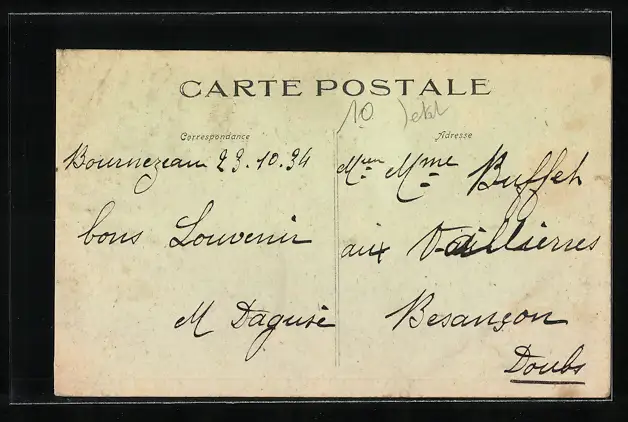 CARTE POSTALE
10
Correspondance
Adresse
Bournezeau 23.10.34
bons Souvenir
M Dagusé
Mr Mme Buffet
aux Vaillières
Besançon
Doubs